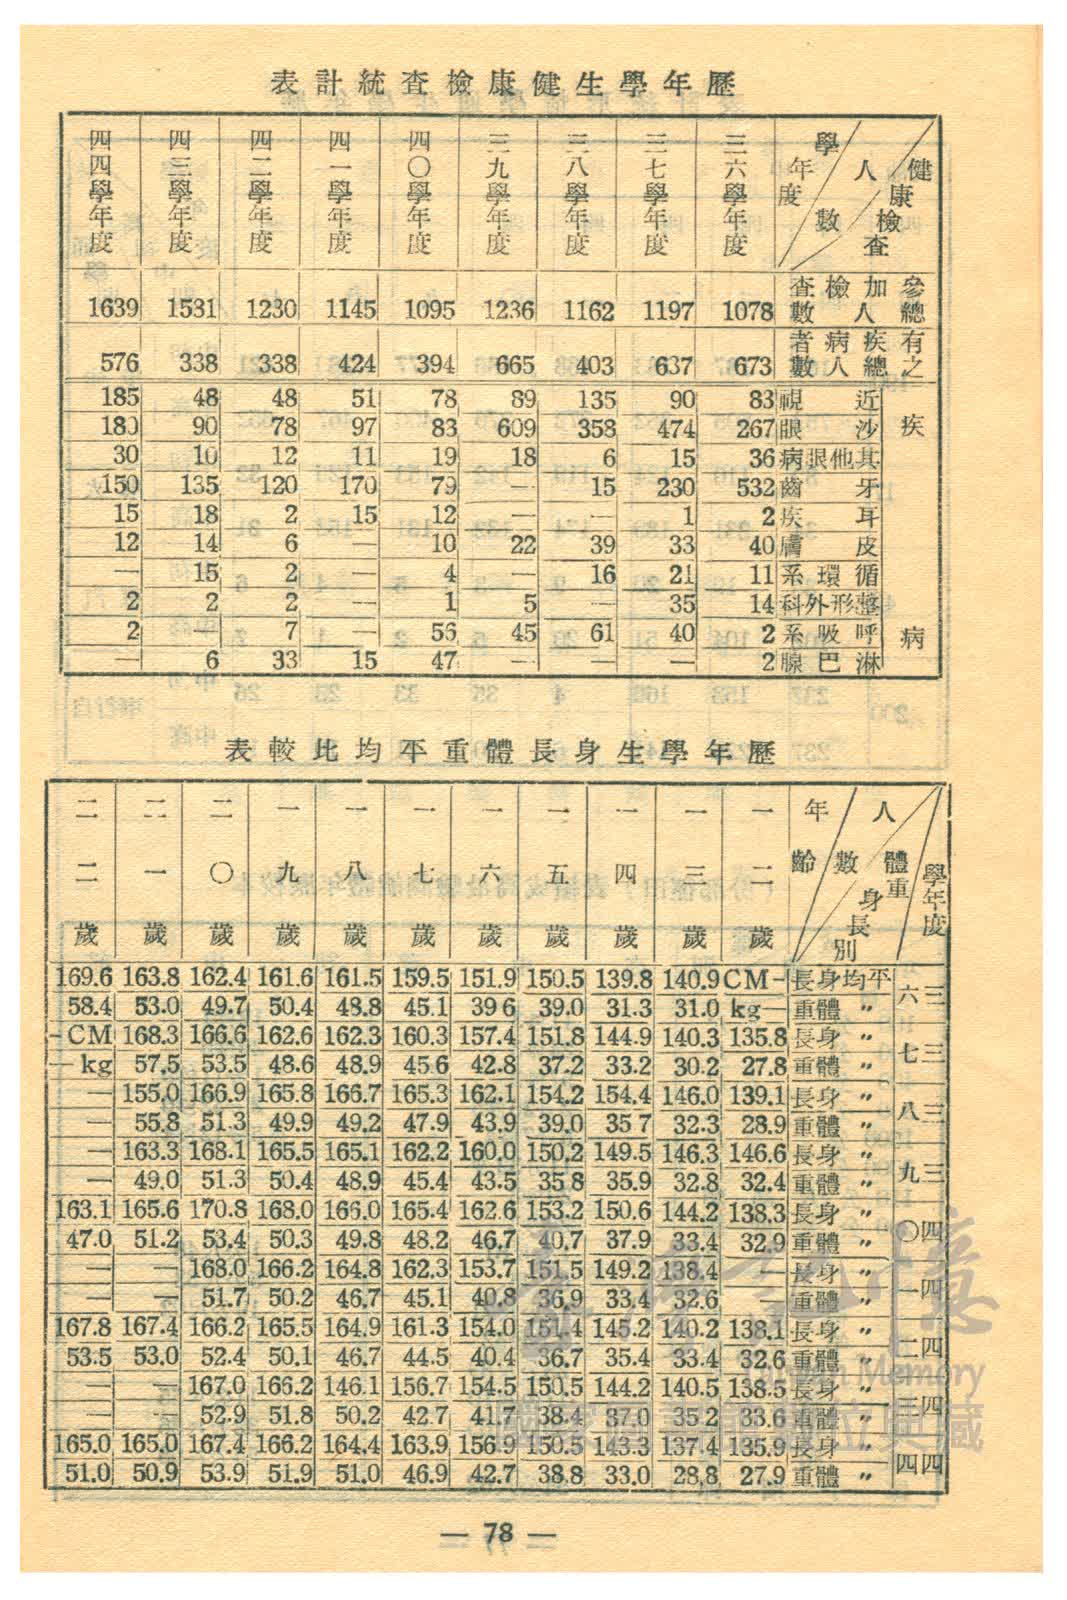 歷年學生健康檢查統計表
健康檢查 人數 學年度 三六學年度 三七學年度 三八學年度 三九學年度 四〇學年度 四一學年度 四二學年度 四三學年度 四四學年度
參加檢查總人數 1078 1197 1162 1236 1095 1145 1230 1531 1639
有疾病者之總人數 673 637 403 665 394 424 338 338 576
疾病
近視 83 90 135 89 78 51 48 48 185
沙眼 267 474 358 609 83 97 78 90 180
其他眼病 36 15 6 18 19 11 12 10 30
牙齒 532 230 15 — 79 170 120 135 150
耳疾 2 1 — — 12 15 2 18 15
皮膚 40 33 39 22 10 — 6 14 12
循環系 11 21 16 — 4 — 2 15 —
整形外科 14 35 — 5 1 — 2 2 2
呼吸系 2 40 61 45 56 — 7 — 2
淋巴腺 2 — — — 47 15 33 6 —
歷年學生身長體重平均比較表
學年度 人數 體重身長別 年齡 一二歲 一三歲 一四歲 一五歲 一六歲 一七歲 一八歲 一九歲 二〇歲 二一歲 二二歲
三六 平均身長 CM- 140.9 139.8 150.5 151.9 159.5 161.5 161.6 162.4 163.8 169.6
〃 體重 kg— 31.0 31.3 39.0 39 6 45.1 48.8 50.4 49.7 53.0 58.4
三七 〃 身長 135.8 140.3 144.9 151.8 157.4 160.3 162.3 162.6 166.6 168.3 -CM
〃 體重 27.8 30.2 33.2 37.2 42.8 45.6 48.9 48.6 53.5 57.5 —kg
三八 〃 身長 139.1 146.0 154.4 154.2 162.1 165.3 166.7 165.8 166.9 155.0 —
〃 體重 28.9 32.3 35 7 39.0 43.9 47.9 49.2 49.9 51.3 55.8 —
三九 〃 身長 146.6 146.3 149.5 150.2 160.0 162.2 165.1 165.5 168.1 163.3 —
〃 體重 32.4 32.8 35.9 35 8 43.5 45.4 48.9 50.4 51.3 49.0 —
四〇 〃 身長 138.3 144.2 150.6 153.2 162.6 165.4 166.0 168.0 170.8 165.6 163.1
〃 體重 32.9 33.4 37.9 40.7 46.7 48.2 49.8 50.3 53.4 51.2 47.0
四一 〃 身長 — 138.4 149.2 151.5 153.7 162.3 164.8 166.2 168.0 — —
〃 體重 — 32.6 33.4 36.9 40.8 45.1 46.7 50.2 51.7 — —
四二 〃 身長 138.1 140.2 145.2 151.4 154.0 161.3 164.9 165.5 166.2 167.4 167.8
〃 體重 32.6 33.4 35.4 36.7 40.4 44.5 46.7 50.1 52.4 53.0 53.5
四三 〃 身長 138.5 140.5 144.2 150.5 154.5 156.7 146.1 166.2 167.0 — —
〃 體重 33.6 35.2 37.0 38.4 41.7 42.7 50.2 51.8 52.9 — —
四四 〃 身長 135.9 137.4 143.3 150.5 156.9 163.9 164.4 166.2 167.4 165.0 165.0
〃 體重 27.9 28.8 33.0 38.8 42.7 46.9 51.0 51.9 53.9 50.9 51.0
— 78 —
Taiwan Memory